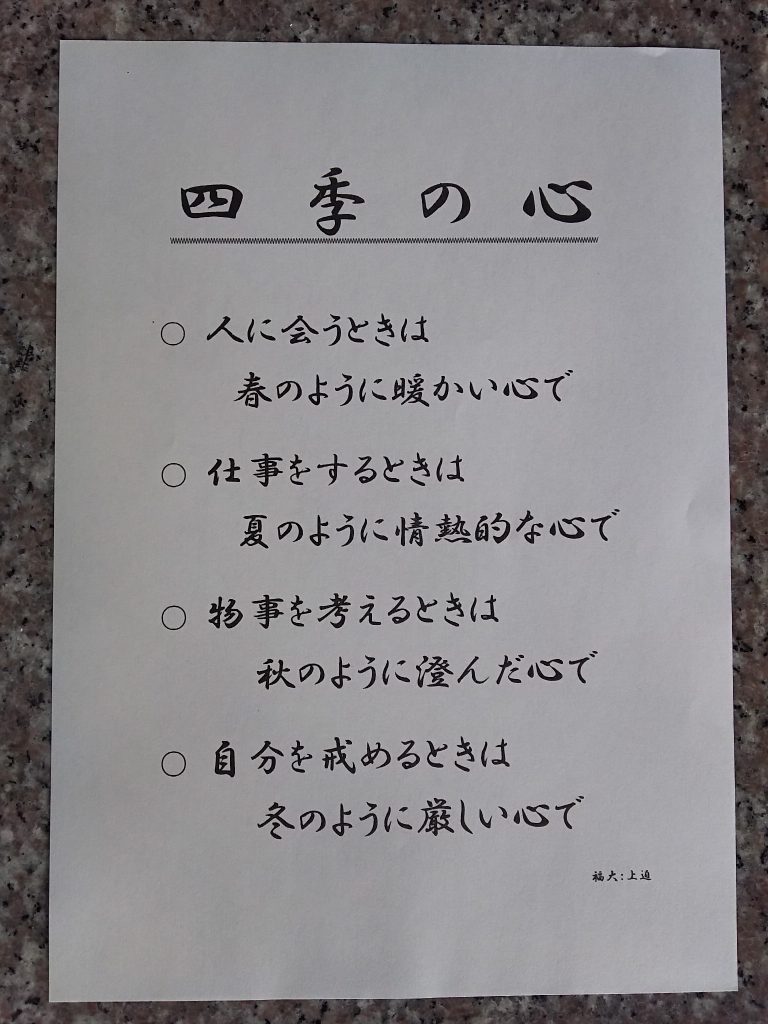 四季の心
○ 人に会うときは
春のように暖かい心で
○ 仕事をするときは
夏のように情熱的な心で
○ 物事を考えるときは
秋のように澄んだ心で
○ 自分を戒めるときは
冬のように厳しい心で
福大:上迫